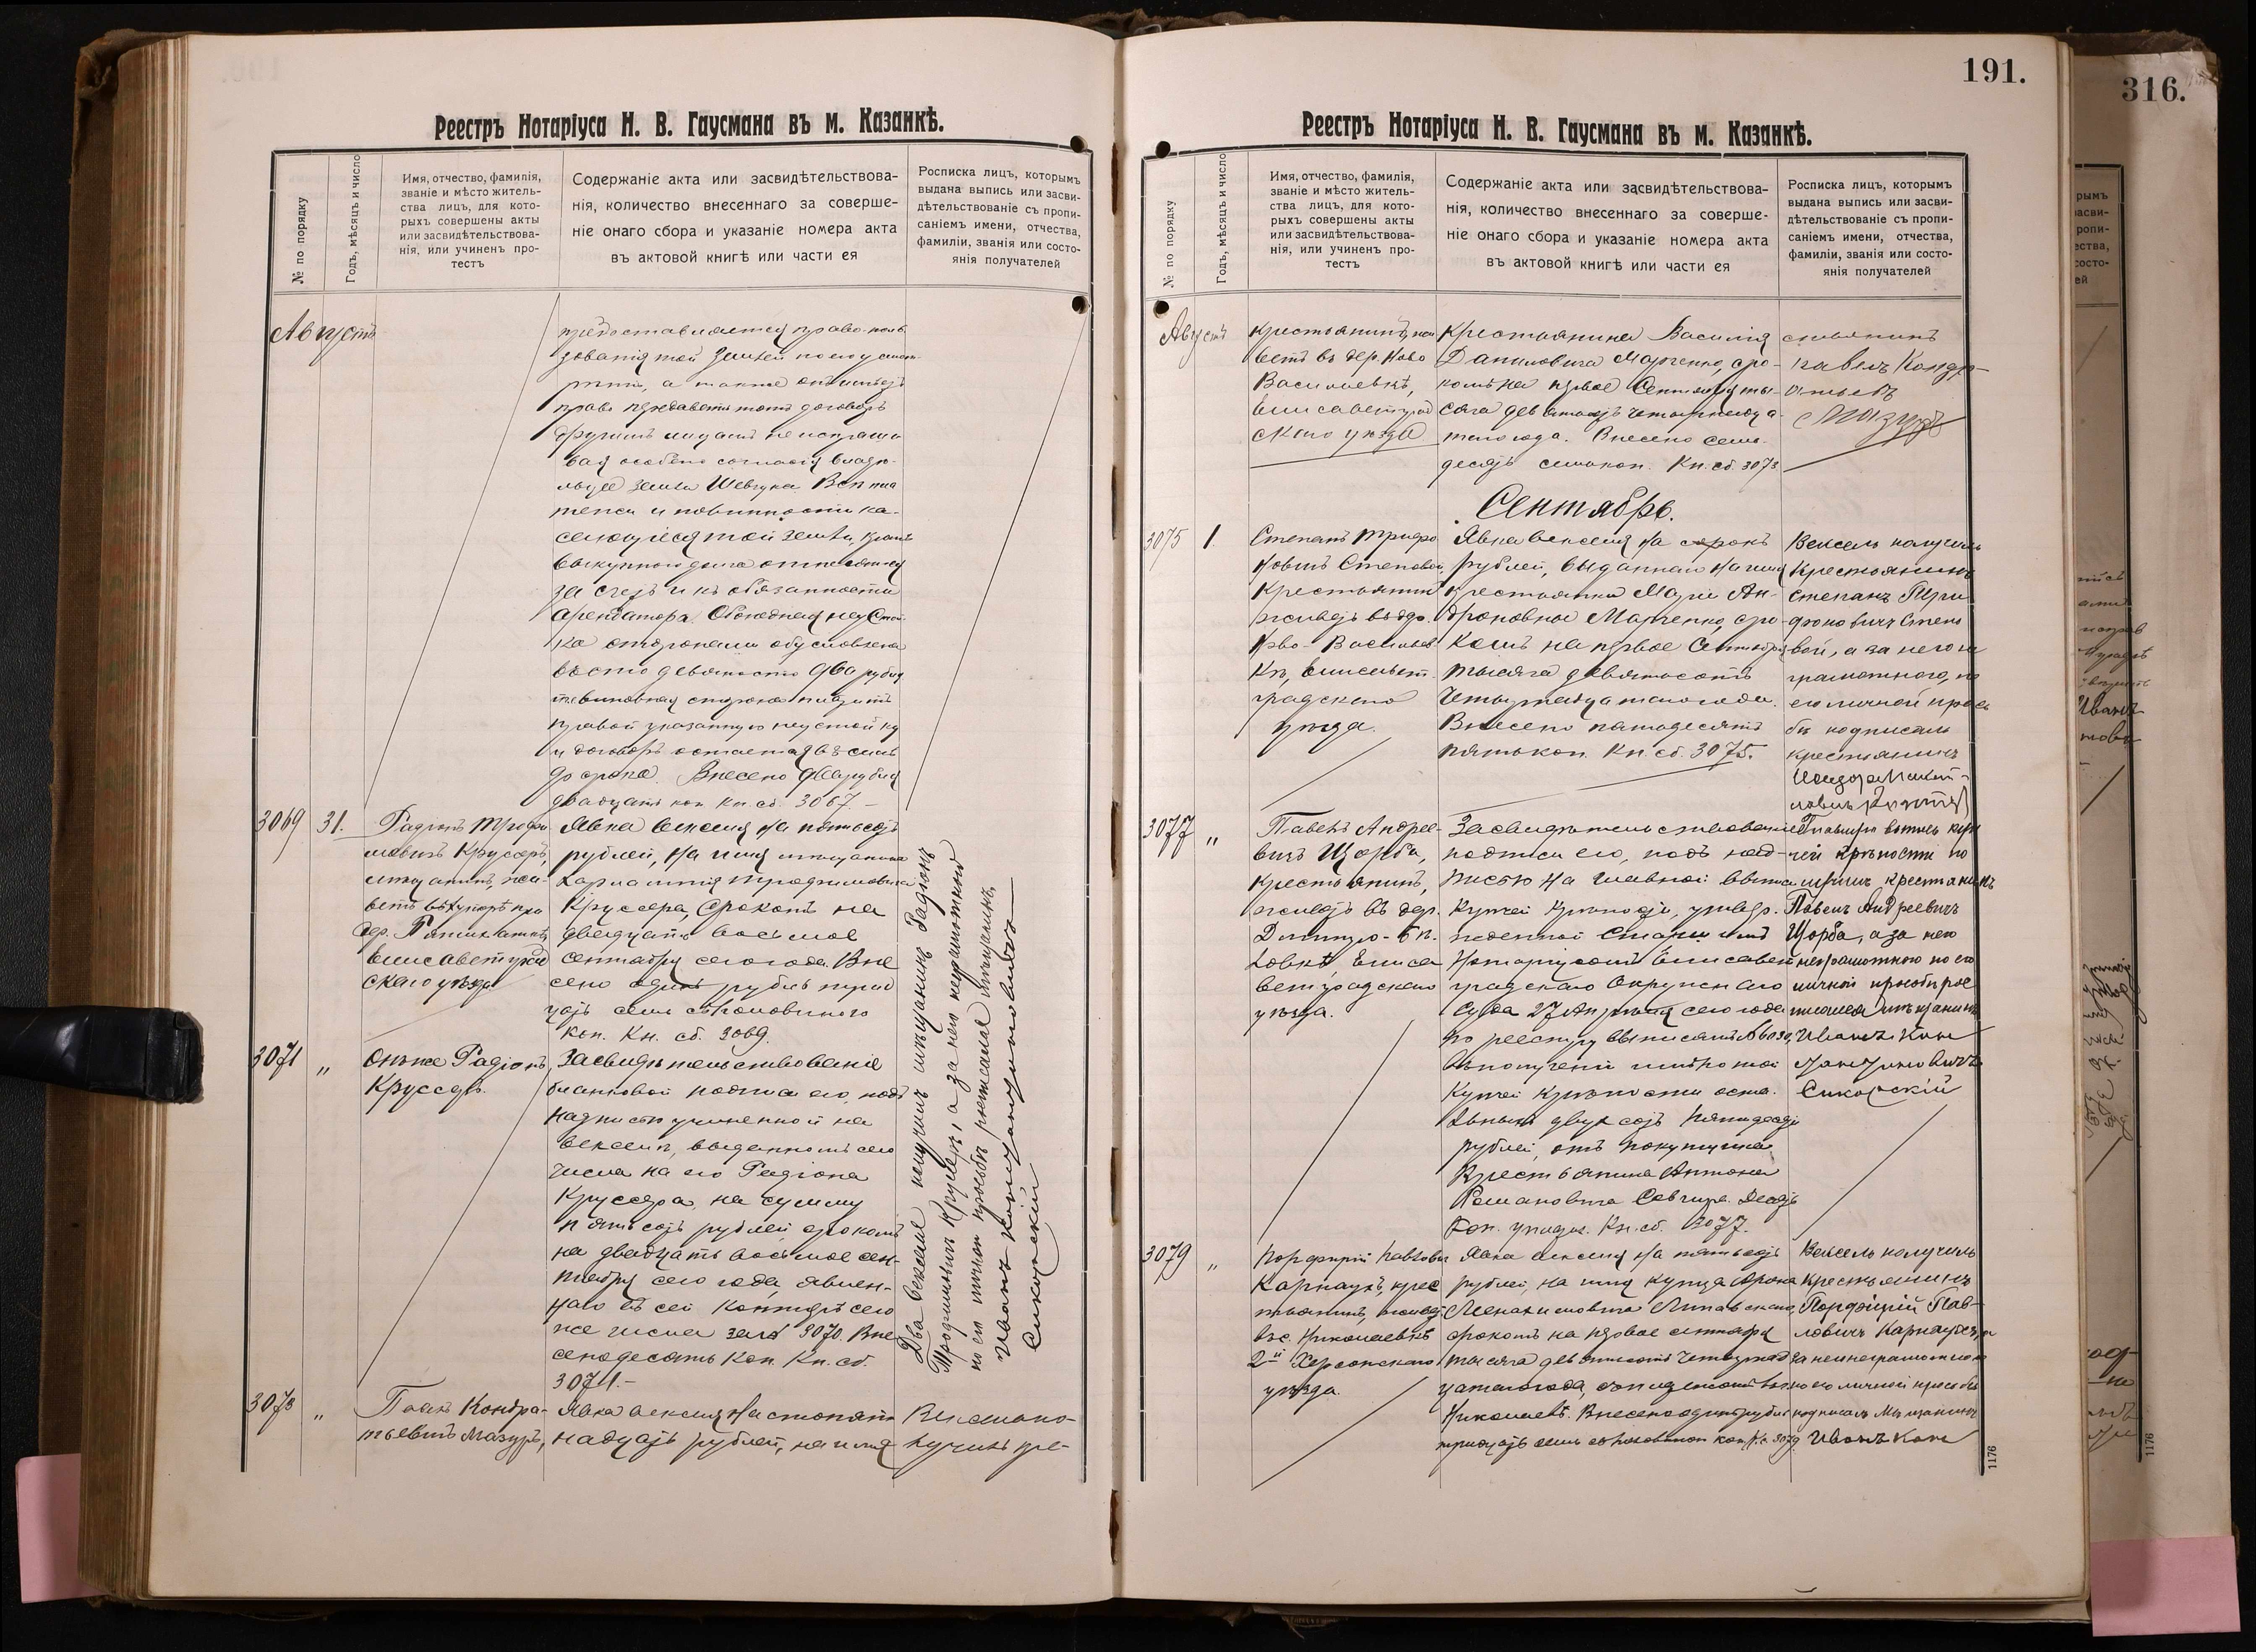 Реестръ Нотаріуса Н. В. Гаусмана въ м. Казанкѣ.
№ по порядку
Годъ, мѣсяцъ и число
Имя, отчество, фамилія,
званіе и мѣсто житель-
ства лицъ, для кото-
рыхъ совершены акты
или засвидѣтельствова-
нія, или учиненъ про-
тестъ
Содержаніе акта или засвидѣтельствова-
нія, количество внесеннаго за соверше-
ніе онаго сбора и указаніе номера акта
въ актовой книгѣ или части ея
Росписка лицъ, которымъ
выдана выпись или засви-
дѣтельствованіе съ пропи-
саніемъ имени, отчества,
фамиліи, званія или состо-
янія получателей
Августъ
предоставляется право поль
зованія той землей по его усмот
рѣнію, а также онъ имѣетъ
право передавать тотъ договоръ
другимъ лицамъ не испраши
вая особено согласія владѣ-
льца земли Шевчука Всѣ пла
тежи и повинности ка-
сающіеся той земли, кромѣ
выкупного долга относятся
за счетъ и къ обязанности
Арендатора. Обоюдная неустой
ка сторонами обусловлена
въ сто девяносто два рубля
виновная сторона платитъ
правой указанную неустойку
и договоръ остается въ силѣ
до срока. Внесено два рубля
двадцать коп. Кн. сб. 3067.
3069 31.
Радіонъ Трофи
мовичъ Круссеръ,
мѣщанинъ, жи-
ветъ въ хуторѣ при
дер.
Елисаветград
скаго уѣзда
Явка векселя на пятьсотъ
рублей, на имя мѣщанина
Трофимовича
Круссера, срокомъ на
двадцать восьмое
сентября сего года. Вне
сено одинъ рубль трид
цать семь съ половиного
коп. Кн. сб. 3069.
3071 „
Онъ же Радіонъ
Круссеръ.
Засвидѣтельствованіе
бланковой подписи его подъ
надписью учиненной на
векселѣ, выданномъ сего
числа на его Радіона
Круссера, на сумму
пятьсотъ рублей срокомъ
на двадцать восьмое сен-
тября сего года, явлен-
наго въ сей Конторѣ сего
же числа за № 3070. Вне
сено десять Коп. Кн. сб.
3071.-
Два векселя получилъ мѣщанинъ Радіонъ
Трофимовичъ Круссеръ, а за него неграмотнаго
по его личной просьбѣ росписался мѣщанинъ
Иванъ Константиновичъ
Сикорскій
3073 „
Павелъ Кондра-
тьевичъ Мазуръ,
Явка векселя на сто пят
надцать рублей, на имя
Вексель по-
лучилъ кре-
191.
Реестръ Нотаріуса Н. В. Гаусмана въ м. Казанкѣ.
№ по порядку
Годъ, мѣсяцъ и число
Имя, отчество, фамилія,
званіе и мѣсто житель-
ства лицъ, для кото-
рыхъ совершены акты
или засвидѣтельствова-
нія, или учиненъ про-
тестъ
Содержаніе акта или засвидѣтельствова-
нія, количество внесеннаго за соверше-
ніе онаго сбора и указаніе номера акта
въ актовой книгѣ или части ея
Росписка лицъ, которымъ
выдана выпись или засви-
дѣтельствованіе съ пропи-
саніемъ имени, отчества,
фамиліи, званія или состо-
янія получателей
Августъ
крестьянинъ, жи
ветъ въ дер. Ново
Васильевкѣ,
Елисаветград
скаго уѣзда
Крестьянина Василія
Даниловича Марченко, сро-
комъ на первое Сентября ты-
сяча девятьсотъ четырнадца
таго года. Внесено семь-
десятъ семь коп. Кн. сб. 3073
стьянинъ
Павелъ Кондр-
атьевъ
Мазуръ
Сентябрь.
3075 1.
Степанъ Трифо
новичъ Степовой,
Крестьянинъ
живетъ въ дер.
Ново-Васильев
кѣ, Елисавет
градскаго
уѣзда.
Явка векселя на сорокъ
рублей, выданнаго на имя
крестьянки Маріи Ан-
дроновны Марченко, сро-
комъ на первое Сентября
тысяча девятьсотъ
четырнадцатаго года.
Внесено пятьдесятъ
пять коп. Кн. сб. 3075.
Вексель получилъ
Крестьянинъ
Степанъ Три
фоновичъ Степо
вой, а за него не
грамотного, по
его личной прось
бѣ подписалъ
крестьянинъ
3077 „
Павелъ Андрее-
вичъ Щорба,
крестьянинъ,
живетъ въ дер.
Елиса
ветградскаго
уѣзда.
Засвидѣтельствованіе
подписи его, подъ над-
писью на главной выписи
Купчей крѣпости, утвер-
жденной Старшимъ
Нотаріусомъ Елисавет
градскаго Окружнаго
Суда 27 Апрѣля сего года
по реестру
въ полученіи имъ по той
Купчей крѣпости оста-
льныхъ двухсотъ пятидесяти
рублей, отъ покупщика
Крестьянина Антона
Романовича Десять
коп. Кн. сб. 3077.
Главную выпись куп
чей крѣпости по
лучилъ крестьянинъ
Павелъ Андреевичъ
Щорба, а за него
неграмотного по его
личной просьбѣ рос
писался мѣщанинъ
Иванъ Кон
стантиновичъ
Сикорскій
3079 „
Порфирій Павлови
Карнаухъ, крес
тьянинъ, живетъ
въ с. Николаевкѣ
2й Херсонскаго
уѣзда.
Явка векселя на пятьсотъ
рублей, на имя купца Арона
срокомъ на первое сентября
тысяча девятьсотъ четырнад
цатаго года,
Николаевъ. Внесено одинъ рубль
тридцать семь съ половиной коп. Кн. 3079.
Вексель получилъ
Крестьянинъ
Порфирій Пав-
ловичъ Карнаухъ, а
за него неграмотного
по его личной просьбѣ
подписалъ Мѣщанинъ
Иванъ Кон
1176
316.
рымъ
асви-
ропи-
ества,
состо-
ей
1176